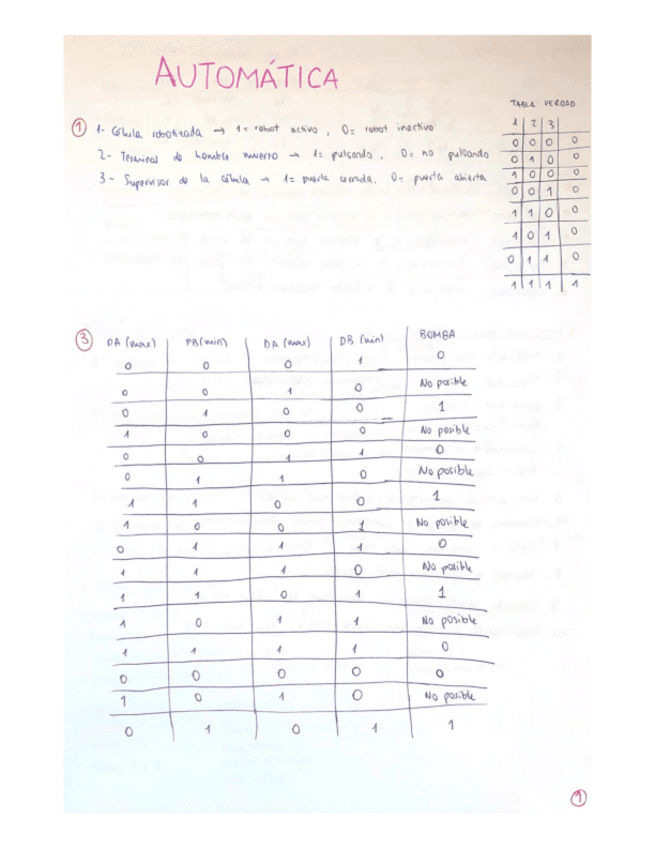 AUTOMÁTICA
1 1- Célula robotizada → 1= robot activo, 0= robot inactivo
2- Terminal de hombre muerto → 1= pulsando, 0= no pulsando
3- Supervisor de la célula → 1= puerta cerrada, 0= puerta abierta
TABLA VERDAD
1 2 3
0 0 0 0
0 1 0 0
1 0 0 0
0 0 1 0
1 1 0 0
1 0 1 0
0 1 1 0
1 1 1 1
3 DA (max) PB (min) DA (max) DB (min) BOMBA
0 0 0 1 0
0 0 1 0 No posible
0 1 0 0 1
1 0 0 0 No posible
0 0 1 1 0
0 1 1 0 No posible
1 1 0 0 1
1 0 0 1 No posible
0 1 1 1 0
1 1 1 0 No posible
1 1 0 1 1
1 0 1 1 No posible
1 1 1 1 0
0 0 0 0 0
1 0 1 0 No posible
0 1 0 1 1
1